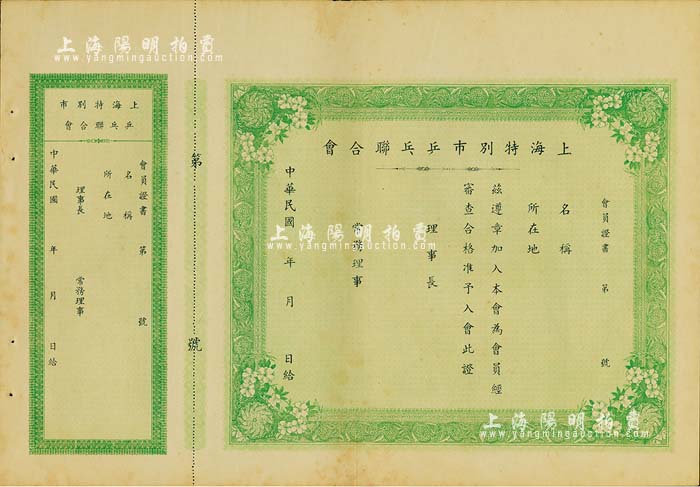 上海陽明拍賣
www.yangmingauction.com
上海特別市乒乓聯合會
會員證書 第 號
名稱
所在地
茲遵章加入本會為會員經
審查合格准予入會此證
理事長
常務理事
中華民國 年 月 日給
第 號
上海特別市
乒乓聯合會
會員證書 第 號
名稱
所在地
理事長 常務理事
中華民國 年 月 日給
上海陽明拍賣
www.yangmingauction.com
上海陽明拍賣
www.yangmingauction.com